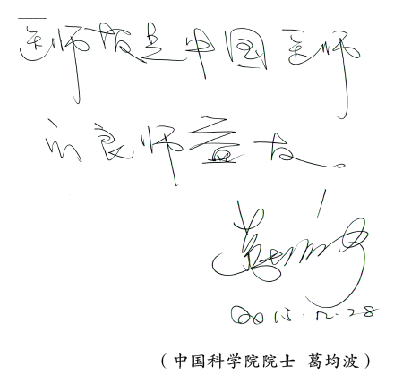 医师报是中国医师
的良师益友。
葛均波
2015.12.28
（中国科学院院士 葛均波）